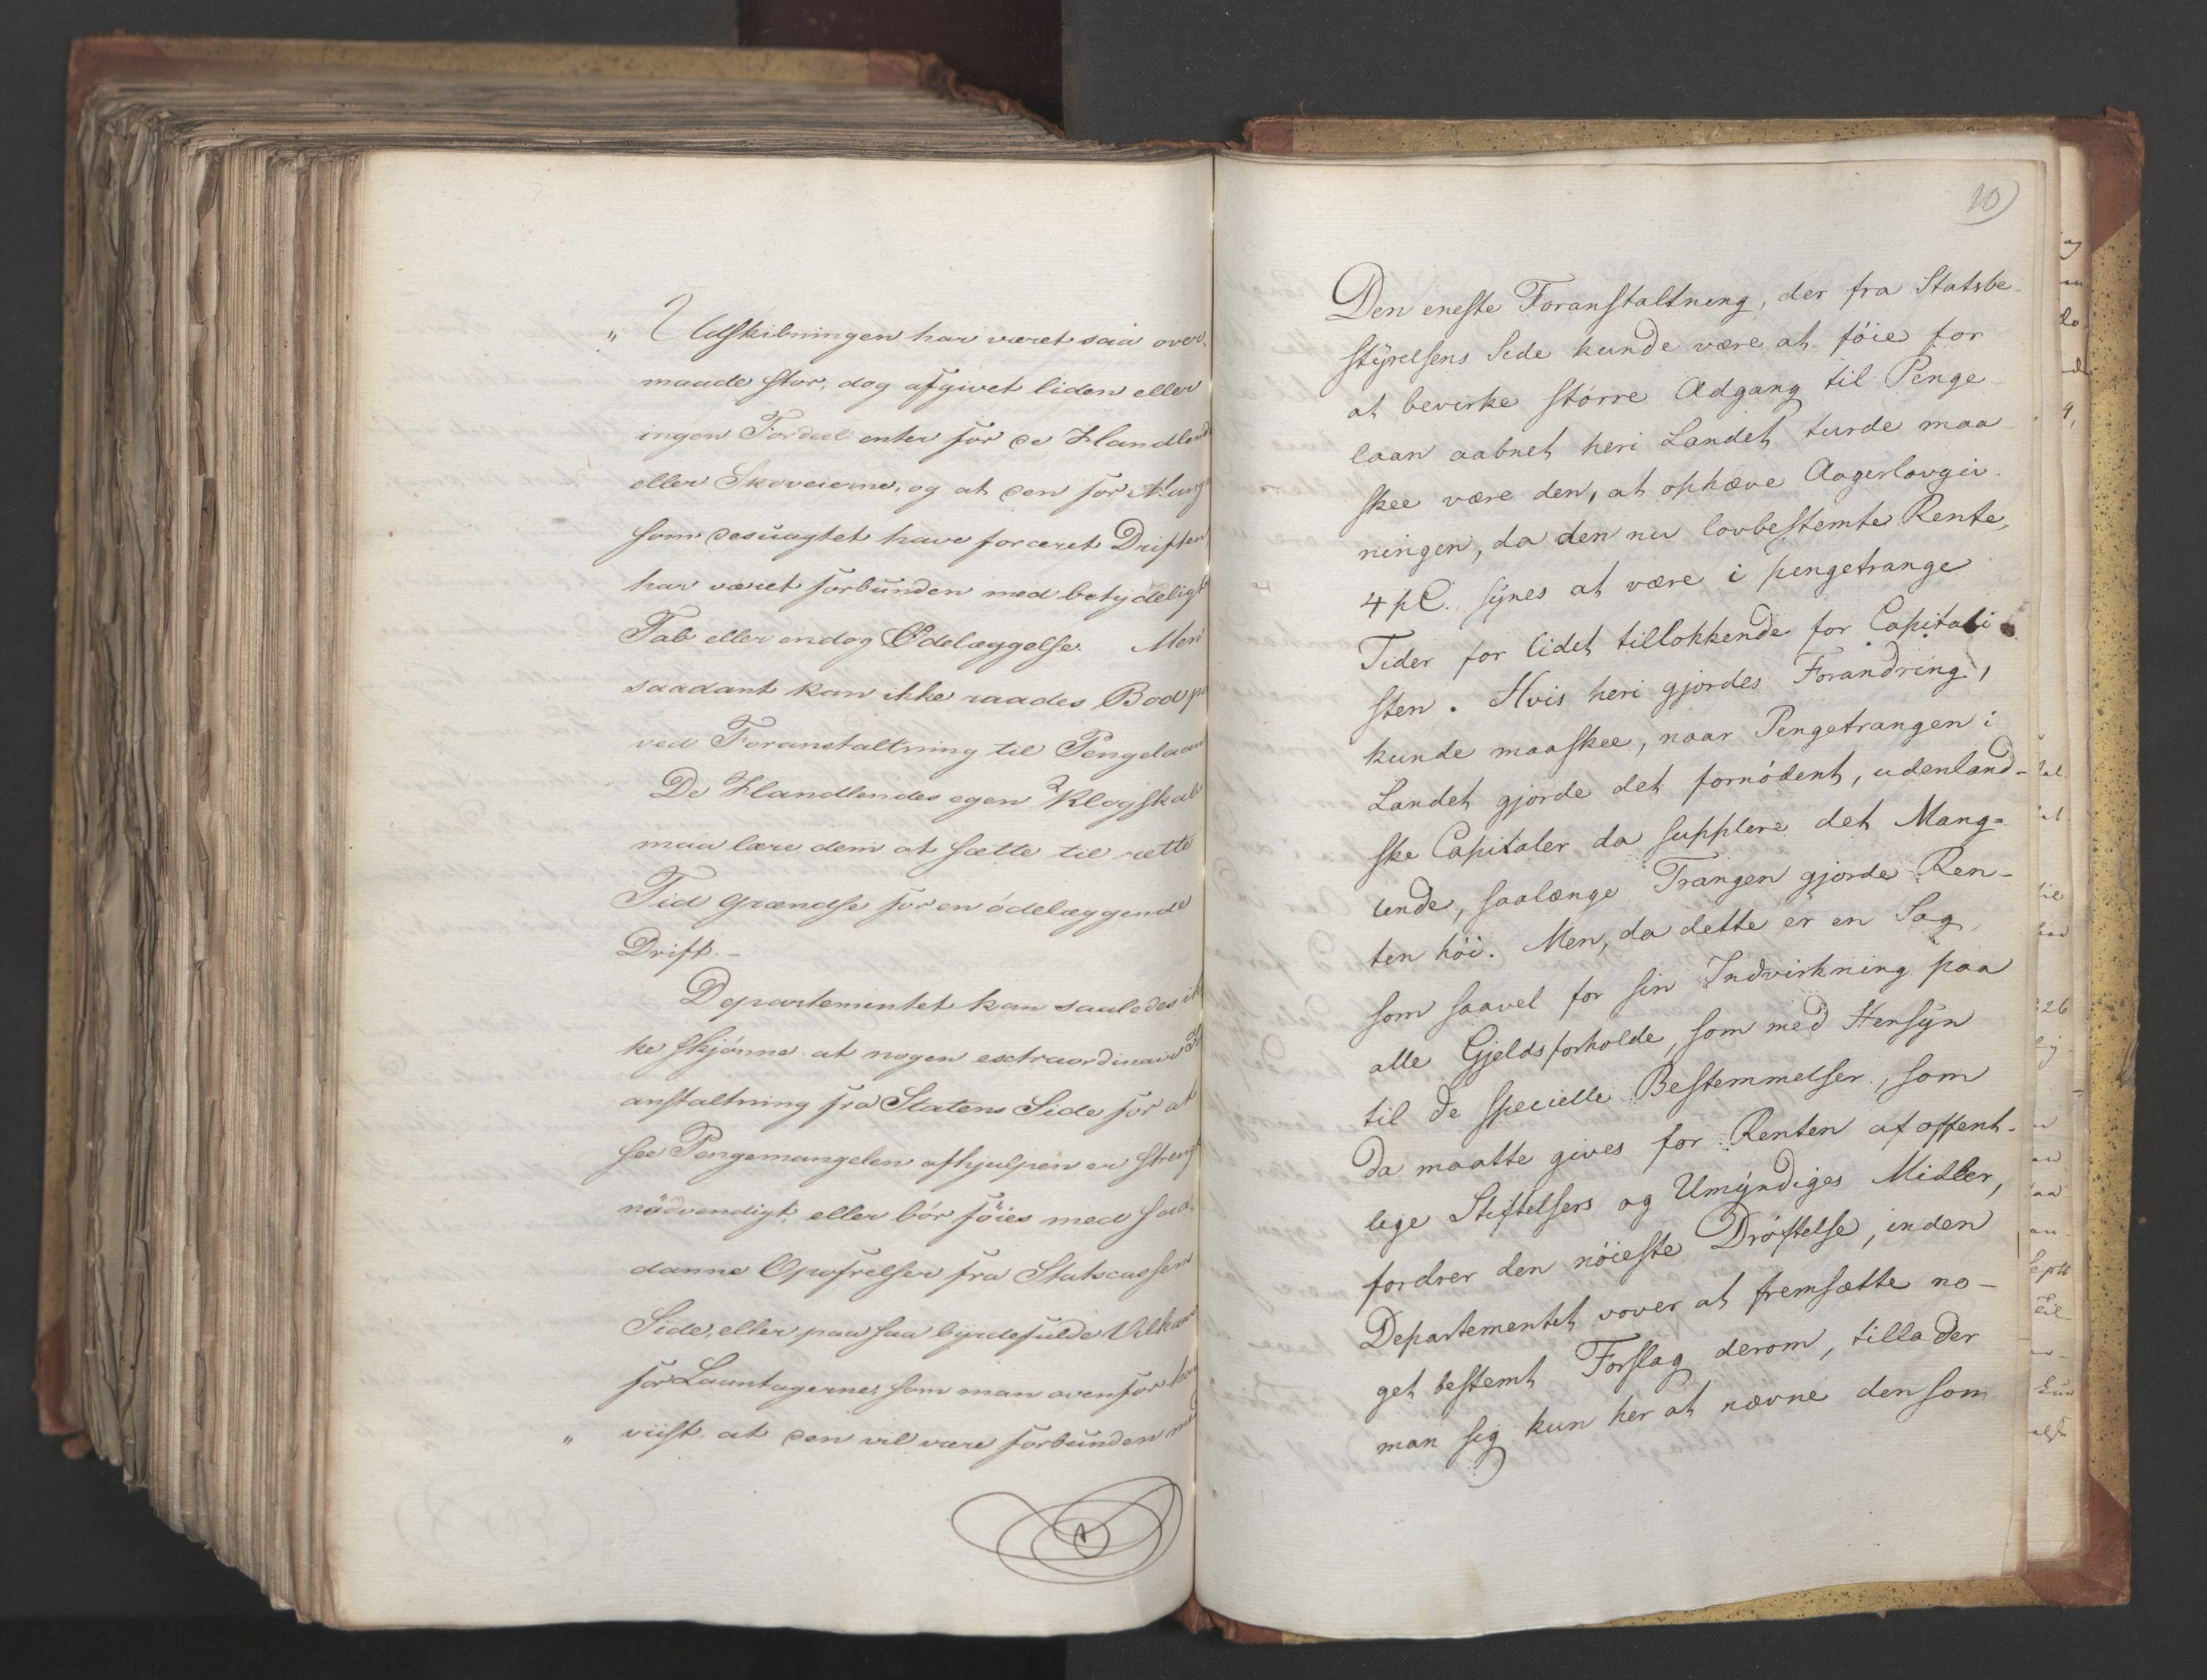 " Udskibningen har været saa over,
maade stor, dog afgivet liden eller
ingen Fordeel enten for de Handlende
eller Skoveierne, og at den for Mange
som desuagtet have forceret Driften
har været forbunden med betydeligt
Tab eller endog Ødelæggelse. Men
saadant kan ikke raades Bod paa
ved Foranstaltning til Pengelaan
De Handlendes egen Klogskab
maa lære dem at sætte til rette
Tid Grændse for en ødelæggende
Drift. –
Departementet kan saaledes ik
ke skjønne at nogen extraordinair For
anstaltning fra Statens Side for at
see Pengemangelen afhjulpen er strengt
nødvendigt, eller bør føies med saa,
danne Opofrelser fra Statscassens
Side, eller paa saa byrdefulde Vilkaar
for Laantagerne, som man ovenfor har
" viist, at den vil være forbunden med
10
Den eneste Foranstaltning, der fra Statsbe-
styrelsens Side kunde være at føie for
at bevirke større Adgang til Penge
laan aabnet heri Landet turde maa
skee være den, at ophæve Aagerlovgiv
ningen, da den nu lovbestemte Rente,
4 pC. synes at være i pengetrange
Tider for lidet tillokkende for Capitali
sten. Hvis heri gjordes Forandring,
kunde maaskee, naar Pengetrangen i
Landet gjorde det fornødent, udenland-
ske Capitaler da supplere det Mang=
lende, saalænge Trangen gjorde Ren-
ten høi. Men, da dette er en Sag,
som saavel for sin Indvirkning paa
alle Gjeldsforholde, som med Hensyn
til de specielle Bestemmelser, som
da maatte gives for Renten af offent-
lige Stiftelsers og Umyndiges Midler,
fordrer den nøieste Drøftelse, inden
Departementet vover at fremsætte no-
get bestemt Forslag derom, tillader
man sig kun her at nævne den som